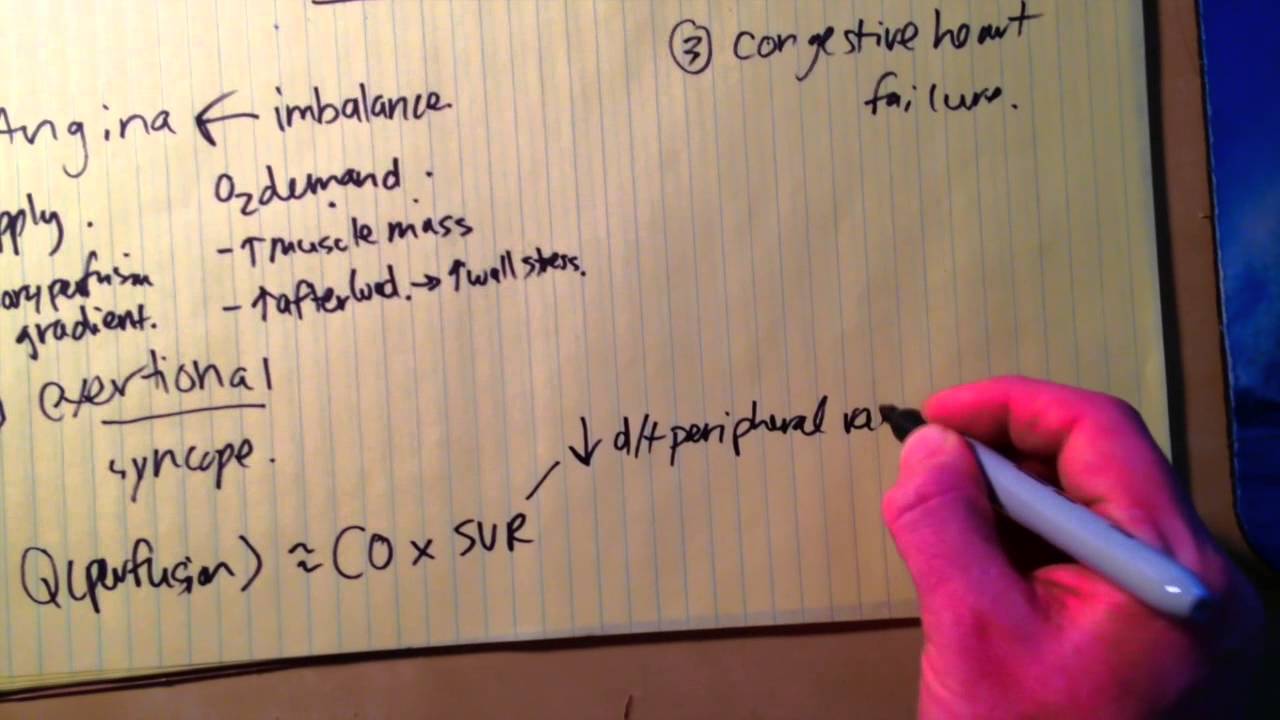 ③ congestive heart
failure.
Angina ← imbalance
O₂ demand.
pply.
- ↑ muscle mass
ary perfusion
gradient.
- ↑ afterload. → ↑ wall stress.
exertional
syncope.
↓ d/t peripheral va
Q(perfusion) ≈ CO x SVR